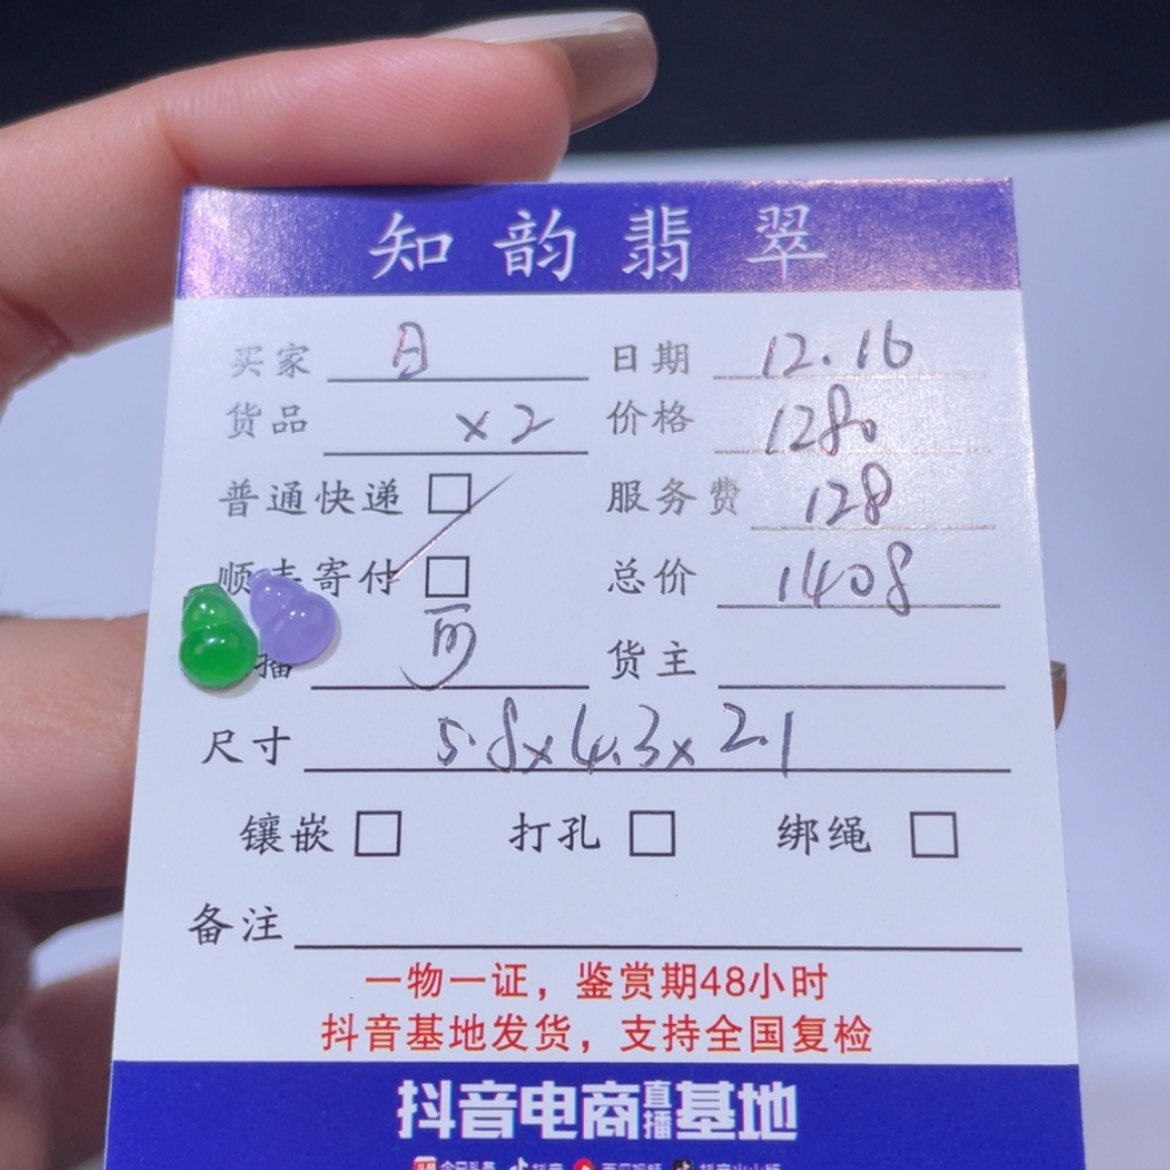 知韵翡翠
买家 日 日期 12.16
货品 x2 价格 1280
普通快递 服务费 128
顺丰寄付 总价 1408
播 货主
尺寸 5.8x4.3x2.1
镶嵌 打孔 绑绳
备注
一物一证，鉴赏期48小时
抖音基地发货，支持全国复检
抖音电商直播基地
今日头条 抖音 西瓜视频 抖音火山版